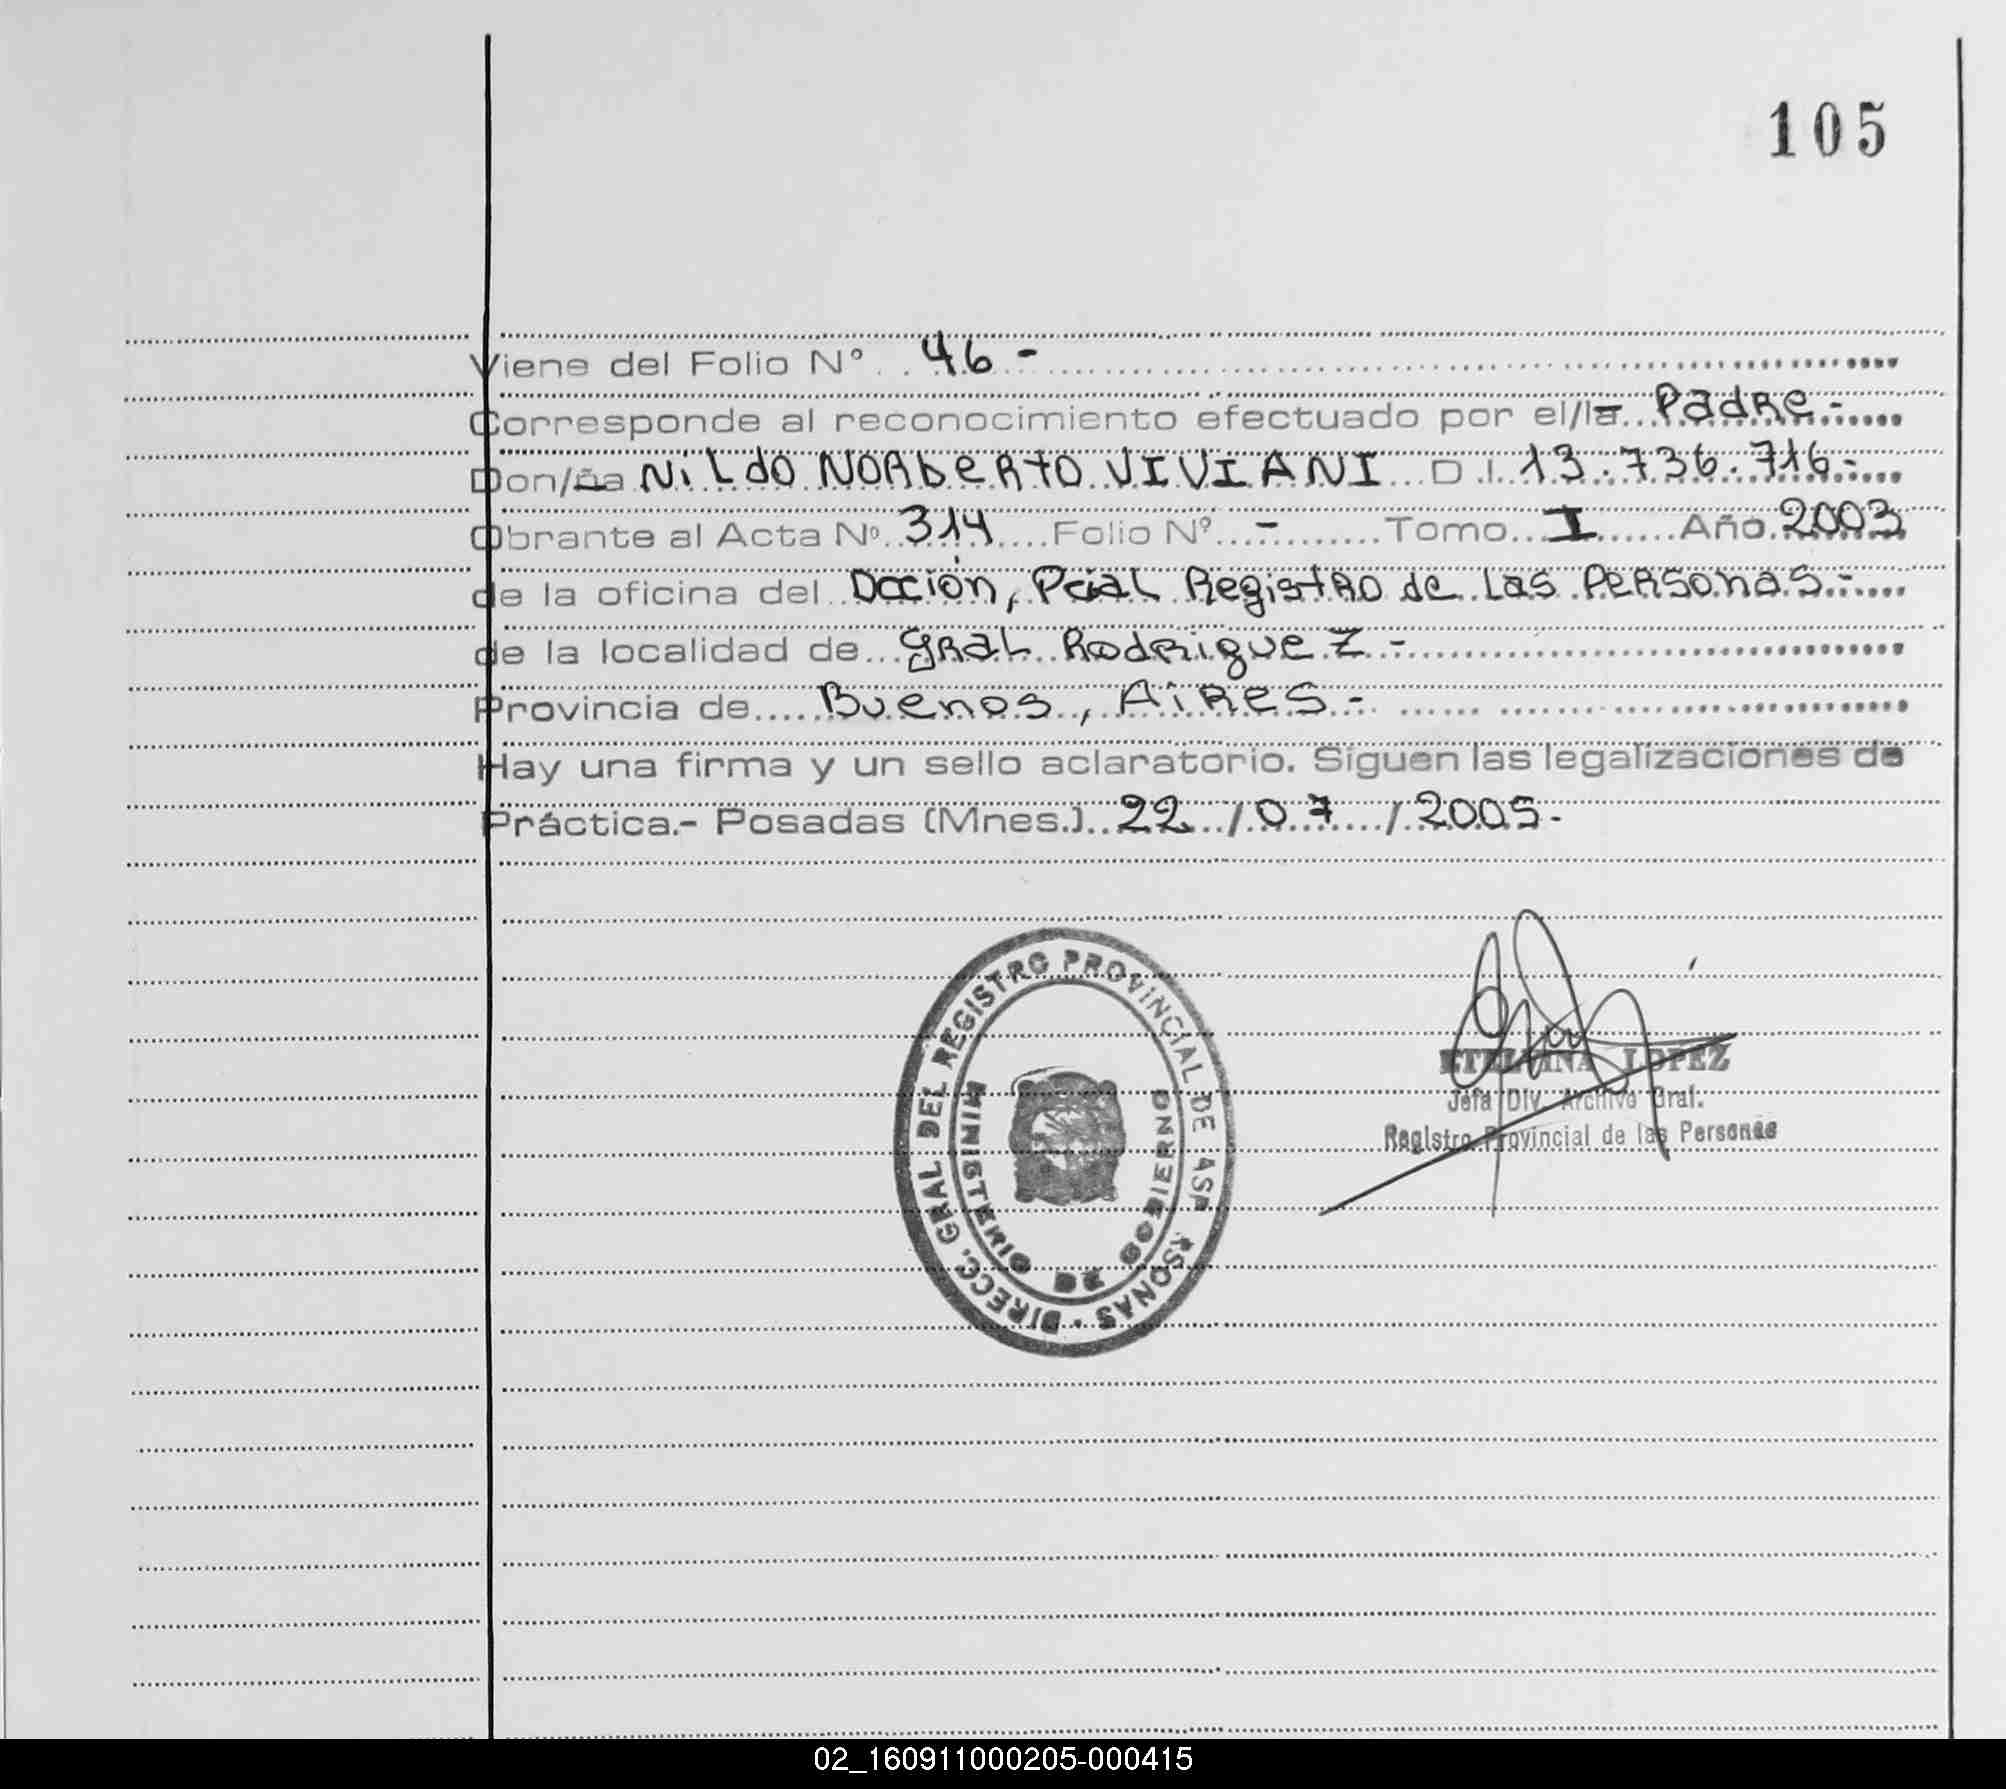 105
Viene del Folio Nº 46 -
Corresponde al reconocimiento efectuado por el/la Padre.-
Don/ña Nildo Norberto VIVIANI D.I. 13.736.716.-
Obrante al Acta Nº 314 Folio Nº - Tomo I Año 2003
de la oficina del Dcción, Pcial Registro de las Personas.-
de la localidad de gral Rodriguez -
Provincia de Buenos, Aires.-
Hay una firma y un sello aclaratorio. Siguen las legalizaciones de
Práctica.- Posadas (Mnes.) 22 / 07 / 2005.-
DIRECC. GRAL DEL REGISTRO PROVINCIAL DE PERSONAS
MINISTERIO DE GOBIERNO
ETELVINA LOPEZ
Jefa Div. Archivo Gral.
Registro Provincial de las Personas
02_160911000205-000415